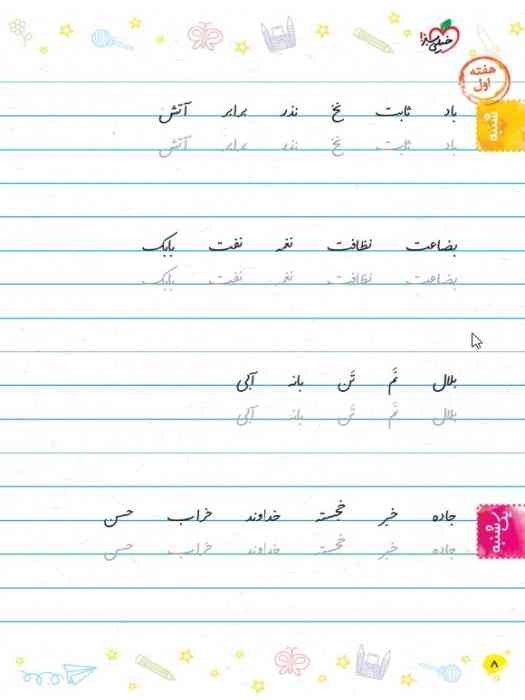 خیلی سبز
هفته اول
شنبه
باد ثابت نخ نذر برابر آتش
باد ثابت نخ نذر برابر آتش
بضاعت نظافت نغمه نفت بابک
بضاعت نظافت نغمه نفت بابک
بلال نَم تَن بانه آبی
بلال نَم تَن بانه آبی
یک‌شنبه
جاده خبر خجسته خداوند خراب حسن
جاده خبر خجسته خداوند خراب حسن
۸